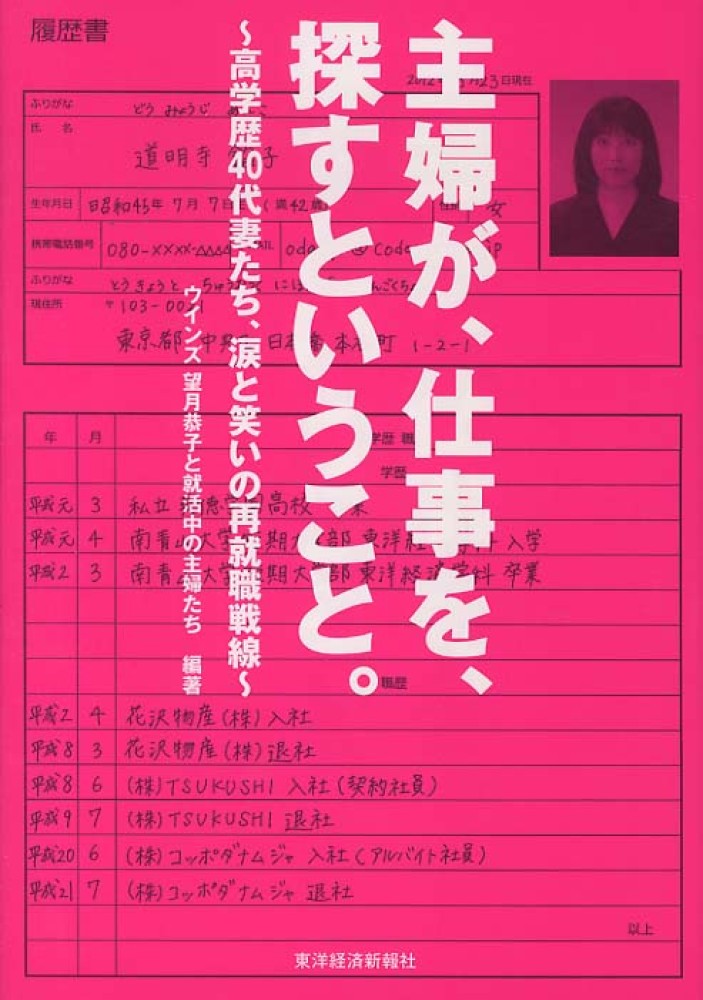 履歴書
主婦が、仕事を、
探すということ。
〜高学歴40代妻たち、涙と笑いの再就職戦線〜
ウインズ 望月恭子と就活中の主婦たち 編著
23日現在
ふりがな どう みょうじ
氏名 道明寺 子
生年月日 昭和45年7月7日 (満42歳) 女
携帯電話番号 080-××××-△△△
ふりがな とうきょうと
現住所 〒103-00
東京都 日本橋 本石町 1-2-1
年 月 学歴 職
学歴
平成元 3 私立 高校
平成元 4 南青山大学 期大学部 東洋経 入学
平成2 3 南青 大学 期大学部 東洋経済学科 卒業
職歴
平成2 4 花沢物産(株)入社
平成8 3 花沢物産(株)退社
平成8 6 (株)TSUKUSHI 入社(契約社員)
平成9 7 (株)TSUKUSHI 退社
平成20 6 (株)コッポダナムジャ 入社(アルバイト社員)
平成21 7 (株)コッポダナムジャ 退社
以上
東洋経済新報社